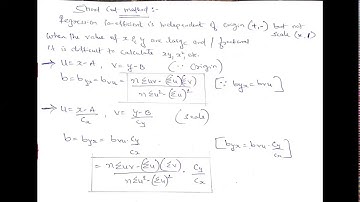 Short Cut method :-
Regression coefficient is independent of origin (+,-) but not scale (x,÷)
when the value of x & y are large and / fractional
it is difficult to calculate xy, x², etc.
U = x-A , V = y-B (∵ origin)
b = byx = bvu = nΣuv-(Σu)(Σv) / nΣu²-(Σu)² [∵ byx = bvu
→ U = x-A / Cx , V = y-B / Cy (scale)
b = byx = bvu · Cy / Cx [byx = bvu · Cy / Cx]
= nΣuv-(Σu)(Σv) / nΣu²-(Σu)² · Cy / Cx